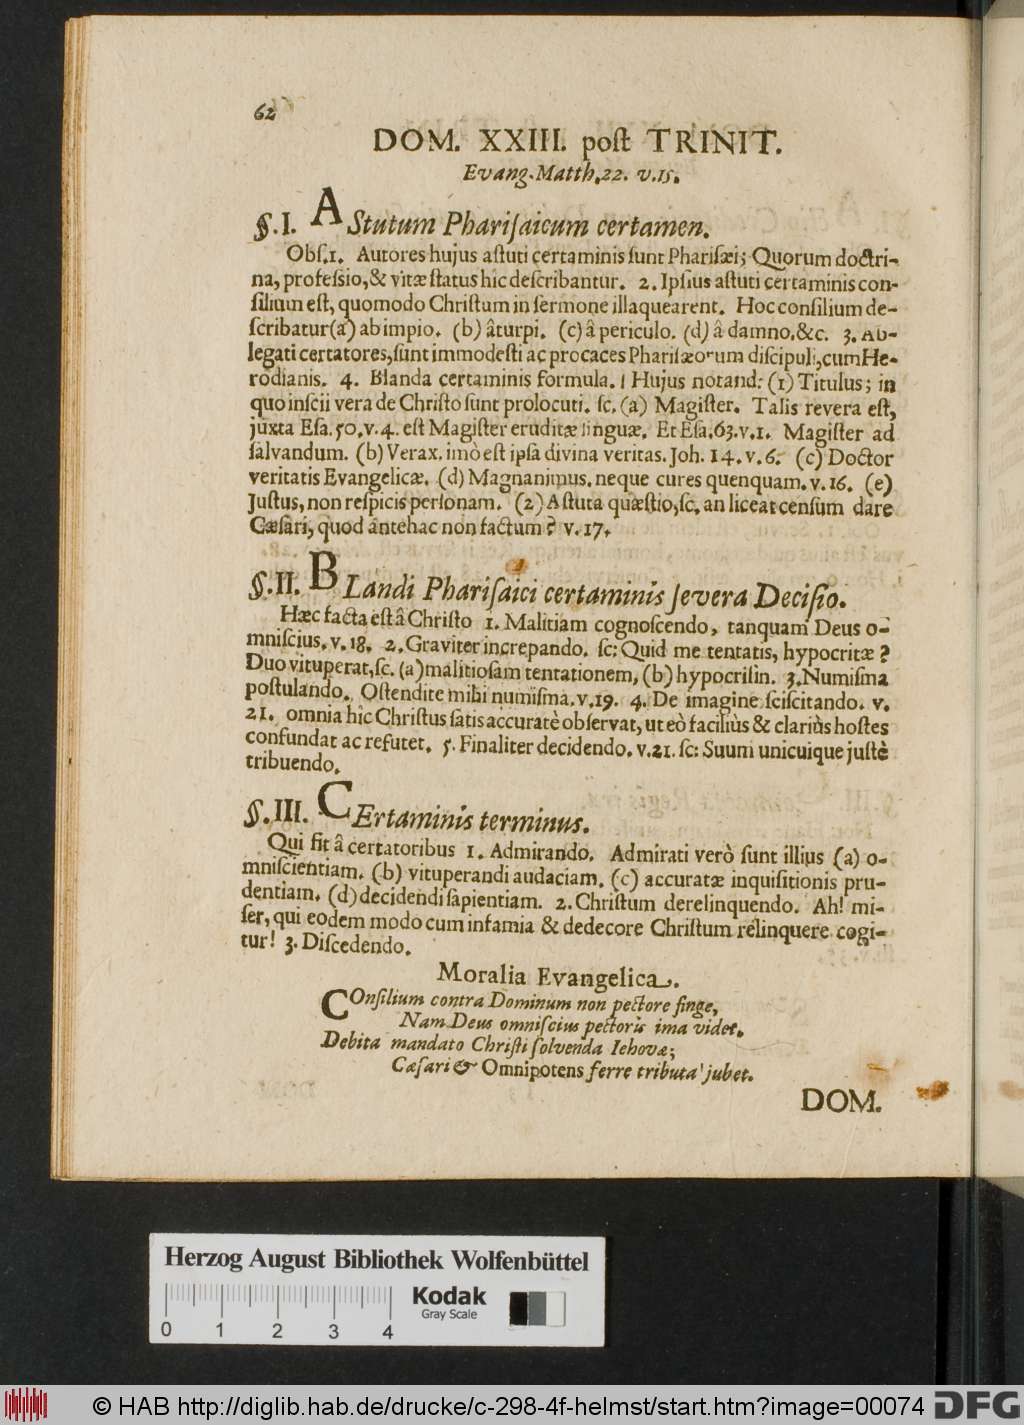 62
DOM. XXIII. poſt TRINIT.
Evang. Matth. 22. v. 15.
§. I. AStutum Phariſaicum certamen.
Obſ. 1. Autores hujus aſtuti certaminis ſunt Phariſæi; Quorum doctri-
na, profeſsio, & vitæ ſtatus hic deſcribantur. 2. Ipſius aſtuti certaminis con-
ſilium eſt, quomodo Chriſtum in ſermone illaquearent. Hoc conſilium de-
ſcribatur (a) ab impio. (b) â turpi. (c) â periculo. (d) â damno, &c. 3. Ab-
legati certatores, ſunt immodeſti ac procaces Phariſæorum diſcipuli, cum He-
rodianis. 4. Blanda certaminis formula. Hujus notand: (1) Titulus; in
quo inſcii vera de Chriſto ſunt prolocuti. ſc. (a) Magiſter. Talis revera eſt,
juxta Eſa. 50. v. 4. eſt Magiſter eruditæ linguæ. Et Eſa. 63. v. 1. Magiſter ad
ſalvandum. (b) Verax. imò eſt ipſa divina veritas. Joh. 14. v. 6. (c) Doctor
veritatis Evangelicæ. (d) Magnanimus. neque cures quenquam. v. 16. (e)
Juſtus, non reſpicis perſonam. (2) Aſtuta quæſtio, ſc. an liceat cenſum dare
Cæſari, quod antehac non factum? v. 17.
§. II. BLandi Phariſaici certaminis ſevera Deciſio.
Hæc facta eſt â Chriſto 1. Malitiam cognoſcendo, tanquam Deus o-
mniſcius. v. 18. 2. Graviter increpando. ſc: Quid me tentatis, hypocritæ?
Duo vituperat, ſc. (a) malitioſam tentationem, (b) hypocriſin. 3. Numiſma
poſtulando. Oſtendite mihi numiſma. v. 19. 4. De imagine ſciſcitando. v.
21. omnia hic Chriſtus ſatis accuratè obſervat, ut eò faciliùs & clariùs hoſtes
confundat ac refutet. 5. Finaliter decidendo. v. 21. ſc: Suum unicuique juſtè
tribuendo.
§. III. CErtaminis terminus.
Qui fit â certatoribus 1. Admirando. Admirati verò ſunt illius (a) o-
mniſcientiam. (b) vituperandi audaciam. (c) accuratæ inquiſitionis pru-
dentiam. (d) decidendi ſapientiam. 2. Chriſtum derelinquendo. Ah! mi-
ſer, qui eodem modo cum infamia & dedecore Chriſtum relinquere cogi-
tur! 3. Diſcedendo.
Moralia Evangelica.
COnſilium contra Dominum non pectore finge,
Nam Deus omniſcius pectoris ima videt.
Debita mandato Chriſti ſolvenda Iehovæ;
Cæſari & Omnipotens ferre tributa jubet.
DOM.
Herzog August Bibliothek Wolfenbüttel
Kodak
Gray Scale
0 1 2 3 4
© HAB http://diglib.hab.de/drucke/c-298-4f-helmst/start.htm?image=00074
DFG